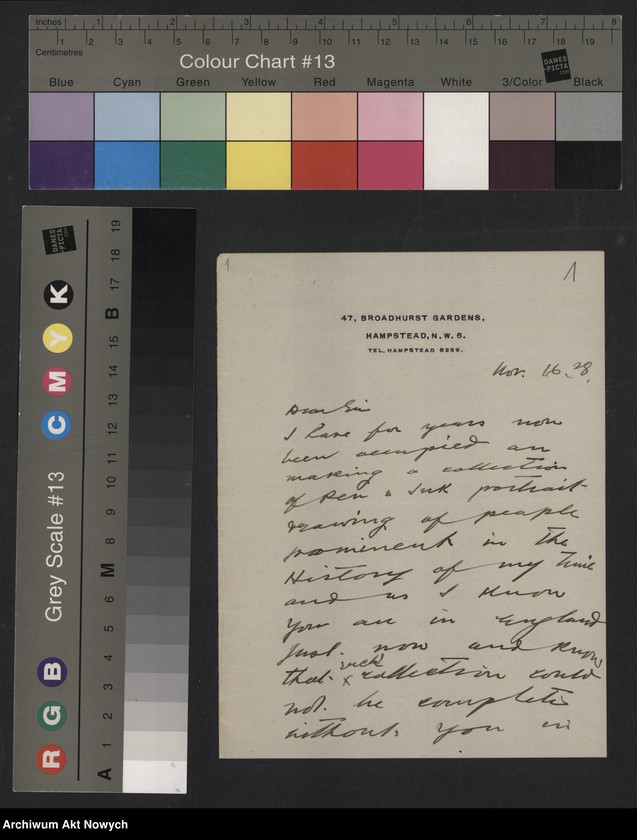 Inches 1 2 3 4 5 6 7 8
1 2 3 4 5 6 7 8 9 10 11 12 13 14 15 16 17 18 19
Centimetres
Colour Chart #13
DANES
-PICTA
.COM
Blue Cyan Green Yellow Red Magenta White 3/Color Black
DANES
-PICTA
.COM
R G B Grey Scale #13 C M Y K
A 1 2 3 4 5 6 M 8 9 10 11 12 13 14 15 B 17 18 19
1
1
47, BROADHURST GARDENS,
HAMPSTEAD, N.W. 6.
TEL. HAMPSTEAD 8259.
Nov. 16. 28.
Dear Sir
I have for years now
been occupied on
making a collection
of Pen & Ink portrait-
drawing of people
prominent in the
History of my time
and as I know
you are in England
just now and know
that such collection could
x
not be complete
without you in
Archiwum Akt Nowych